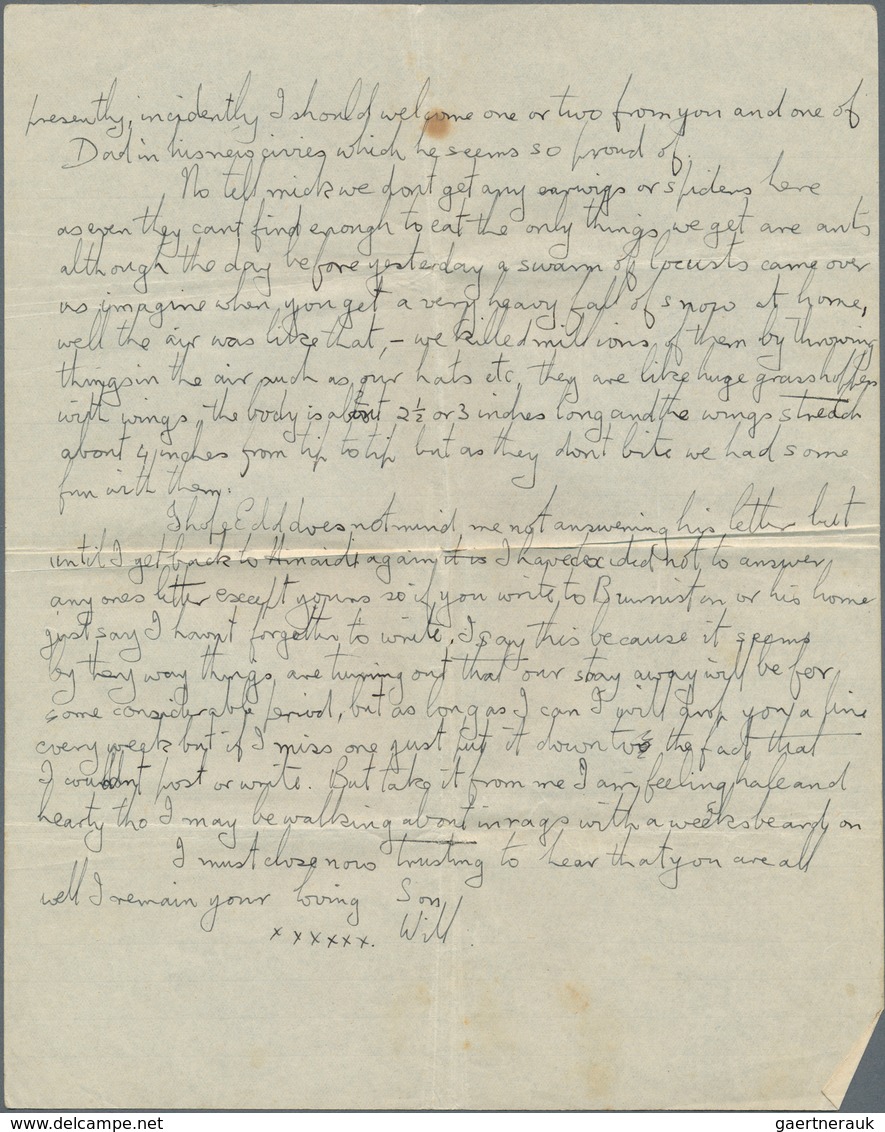 presently, incidently I should welcome one or two from you and one of
Dad in his new civies which he seems so proud of.
No tell mick we dont get any earwigs or spiders here
as even they cant find enough to eat the only things we get are ants
although the day before yesterday a swarm of locusts came over
us imagine when you get a very heavy fall of snow at home,
well the air was like that, – we killed millions of them by throwing
things in the air such as our hats etc, they are like huge grasshoppers
with wings, the body is about 2½ or 3 inches long and the wings stretch
about 4 inches from tip to tip but as they dont bite we had some
fun with them.
I hope Edd does not mind me not answering his letter but
until I get back to Hinaidi again it is I have decided not to answer
any ones letter except yours so if you write to or his home
just say I havnt forgotten to write. I say this because it seems
by they way things are turning out that our stay away will be for
some considerable period, but as long as I can I will drop you a line
every week but if I miss one just put it down to the fact that
I couldnt post or write. But take it from me I am feeling hale and
hearty tho I may be walking about in rags with a weeks beard on
I must close now trusting to hear that you are all
well I remain your loving Son
x x x x x x. Will.
www.delcampe.net
gaertnerauk